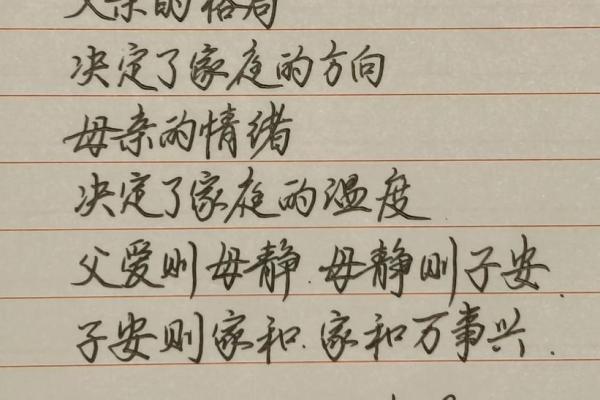 父亲的格局
决定了家庭的方向
母亲的情绪
决定了家庭的温度
父爱则母静.母静则子安.
子安则家和.家和万事兴.